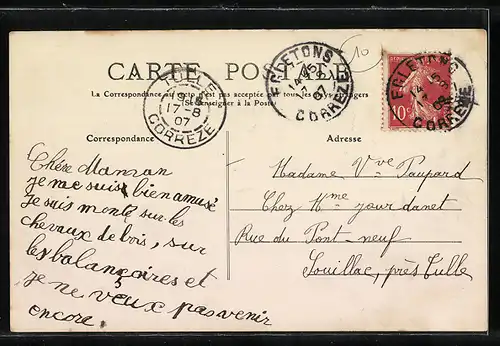 CARTE POSTALE
La Correspondance au recto n'est pas acceptée par tous les pays étrangers
(Se renseigner à la Poste)
TULLE
17-8
07
CORREZE
EGLETONS
14 45
17-8
07
CORREZE
10
EGLETONS
CORREZE
10c
Correspondance
Adresse
Chère Maman
je me suis bien amusé
je suis monté sur les
chevaux de bois, sur
les balançoires et
je ne veux pas venir
encore.
Madame Vve Paupard
Chez Mme jourdanet
Rue du Pont-neuf
Souillac, près Tulle